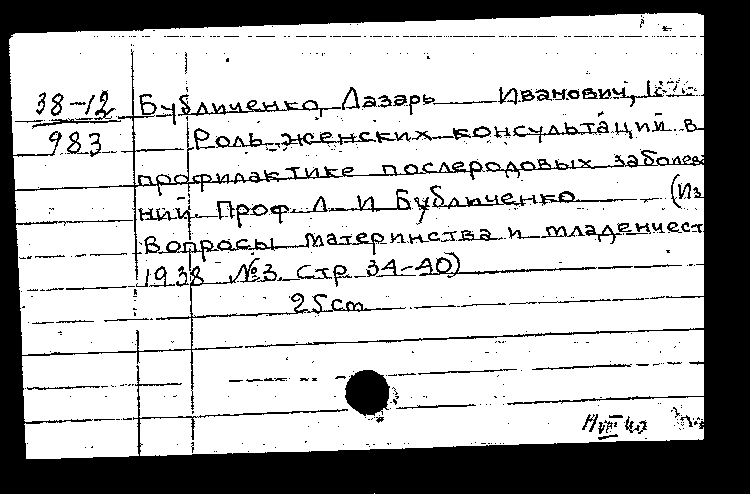 38-12
983
Бубличенко, Лазарь Иванович, 187
Роль женских консультаций в
профилактике послеродовых заболева
ний. Проф. Л. И. Бубличенко (Из
Вопросы материнства и младенчест
1938 №3. стр. 34-40)
25 cm